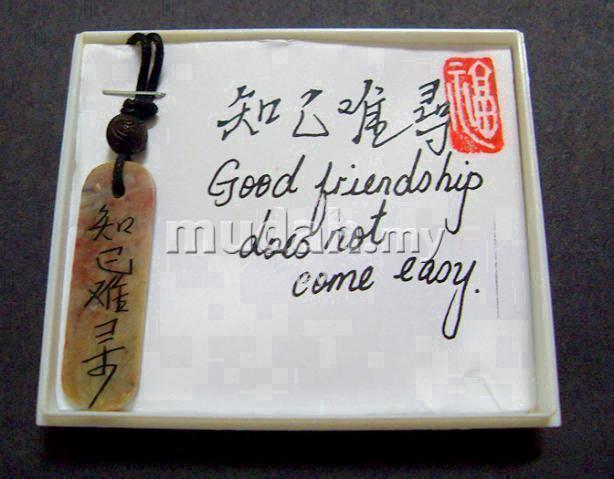 知己难尋
福
Good friendship
does not
come easy.
知己难寻
mudah.my